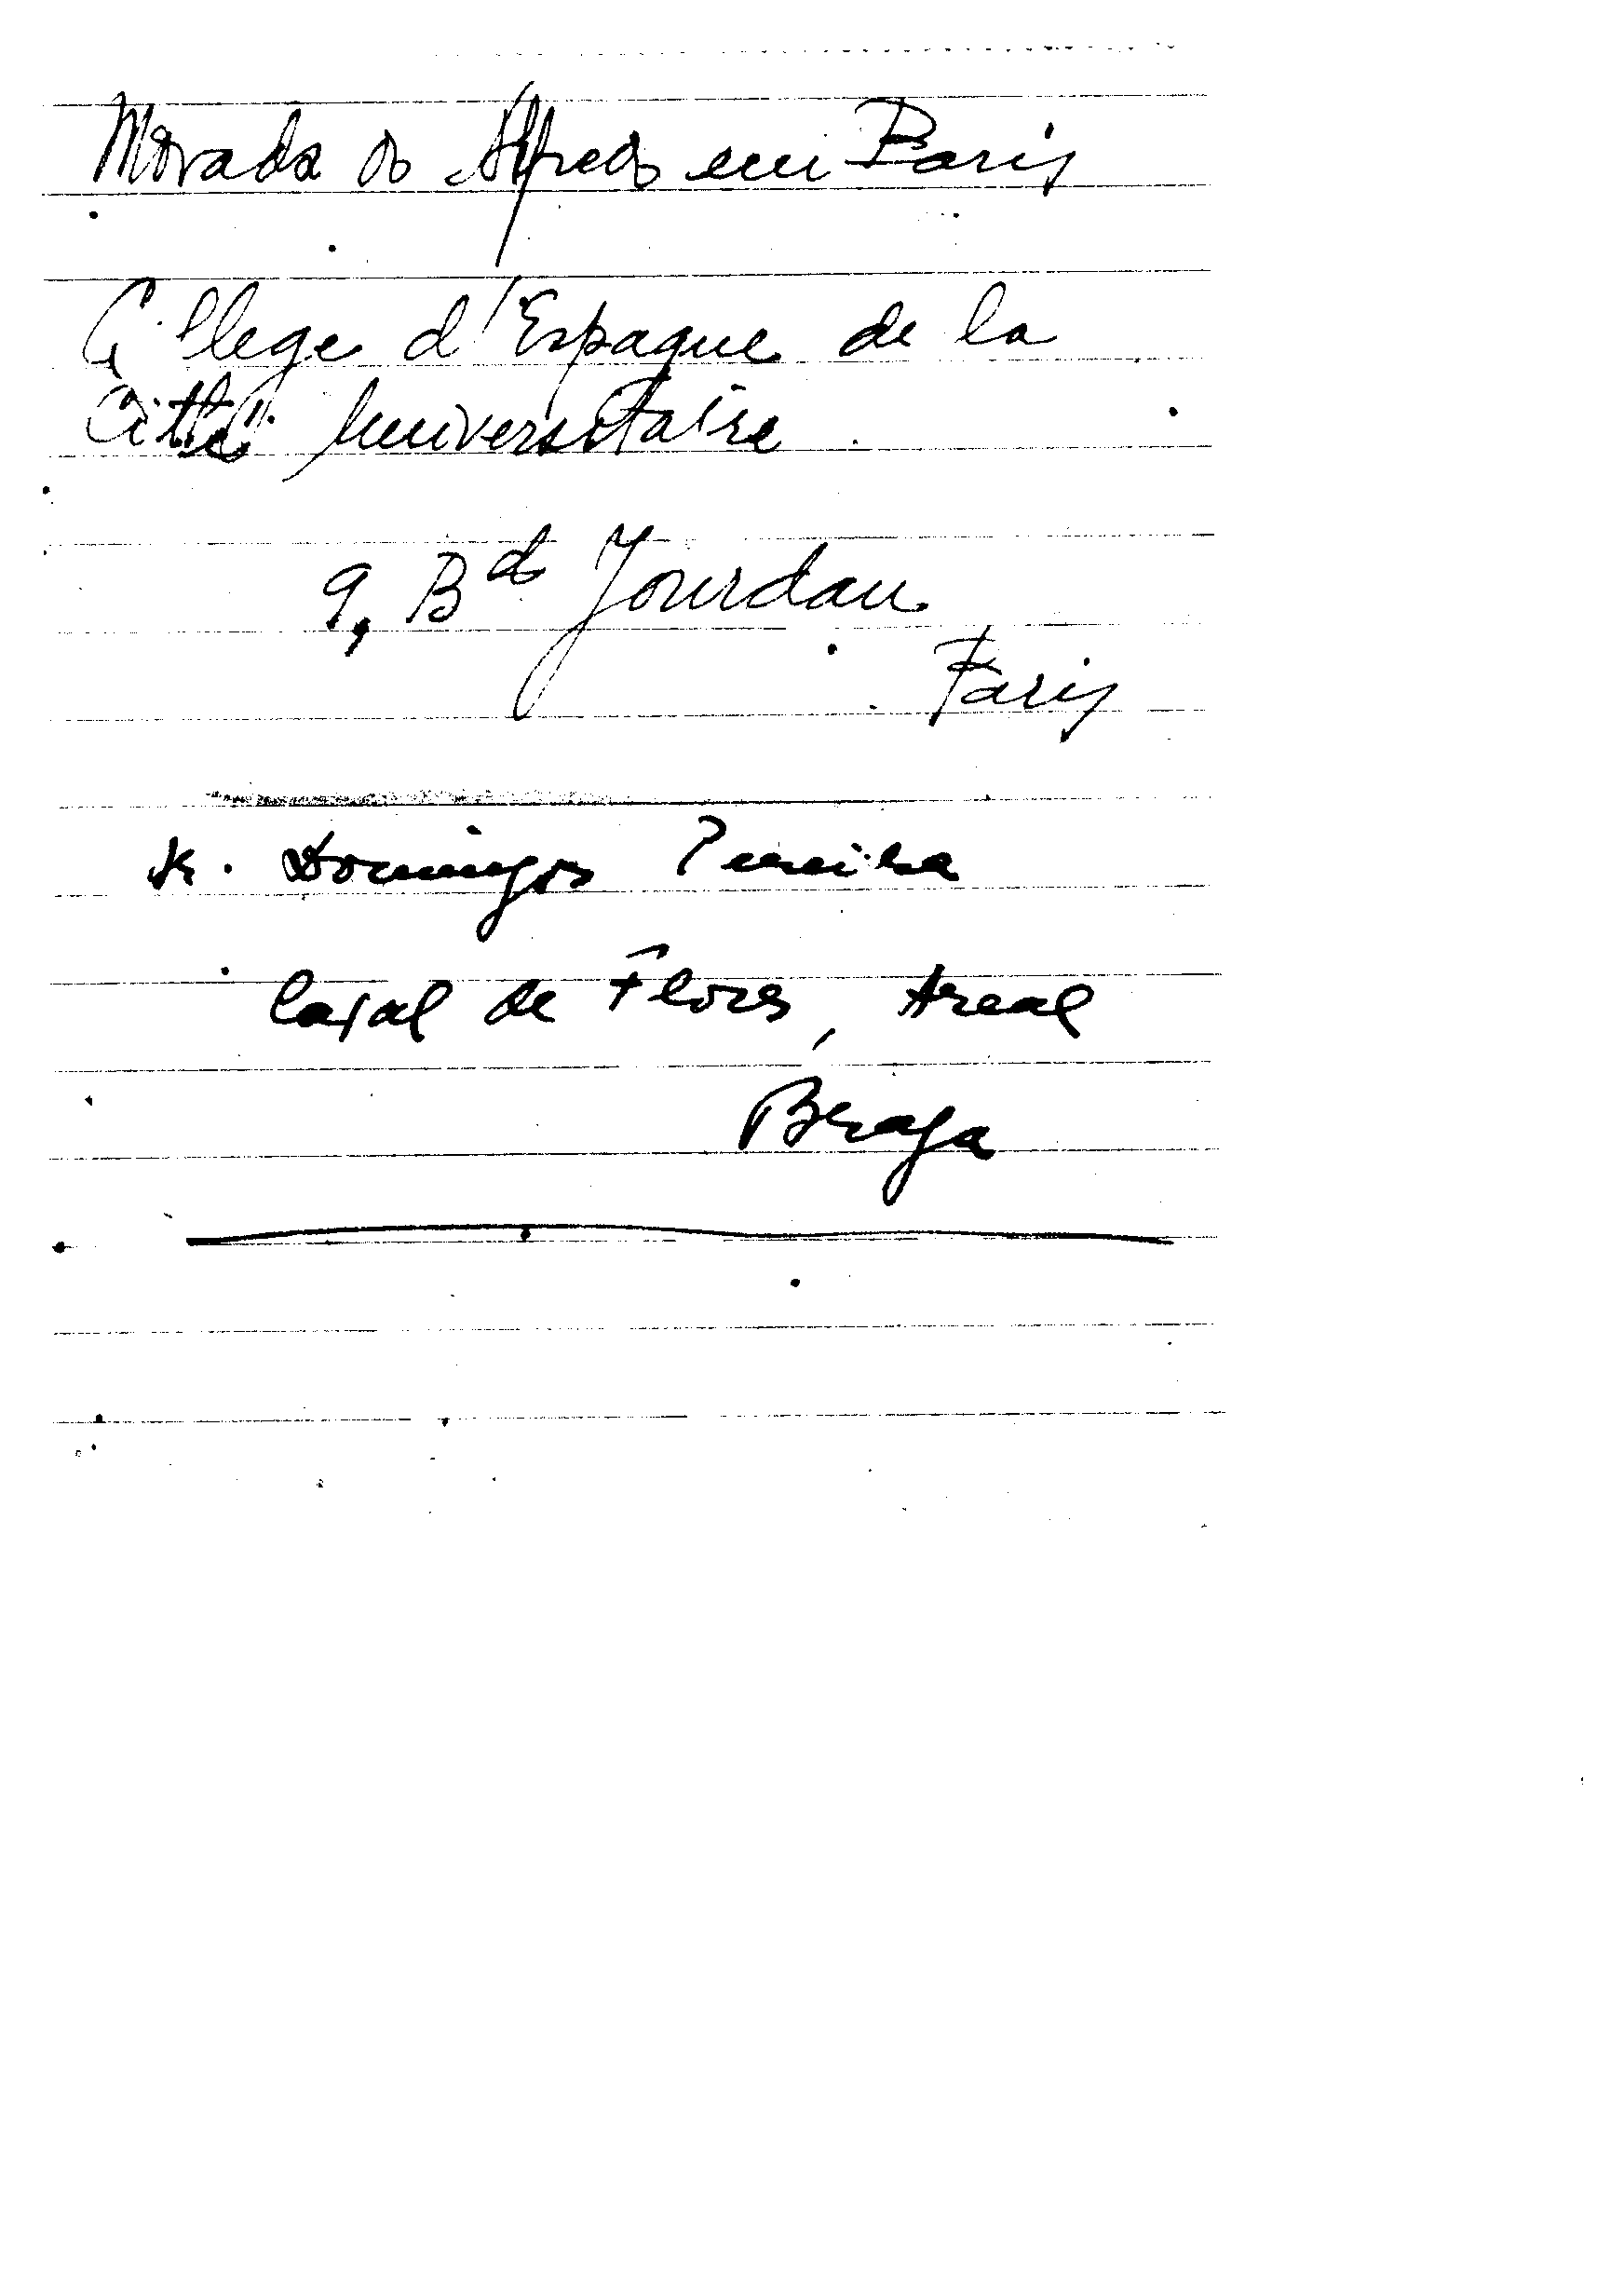 Morada do Alfredo em Paris
College d'Espagne de la
Citté Universitaire
9, Bd Jourdan
Paris
R. Domingos Pereira
Casal de Flores, Areal
Braga